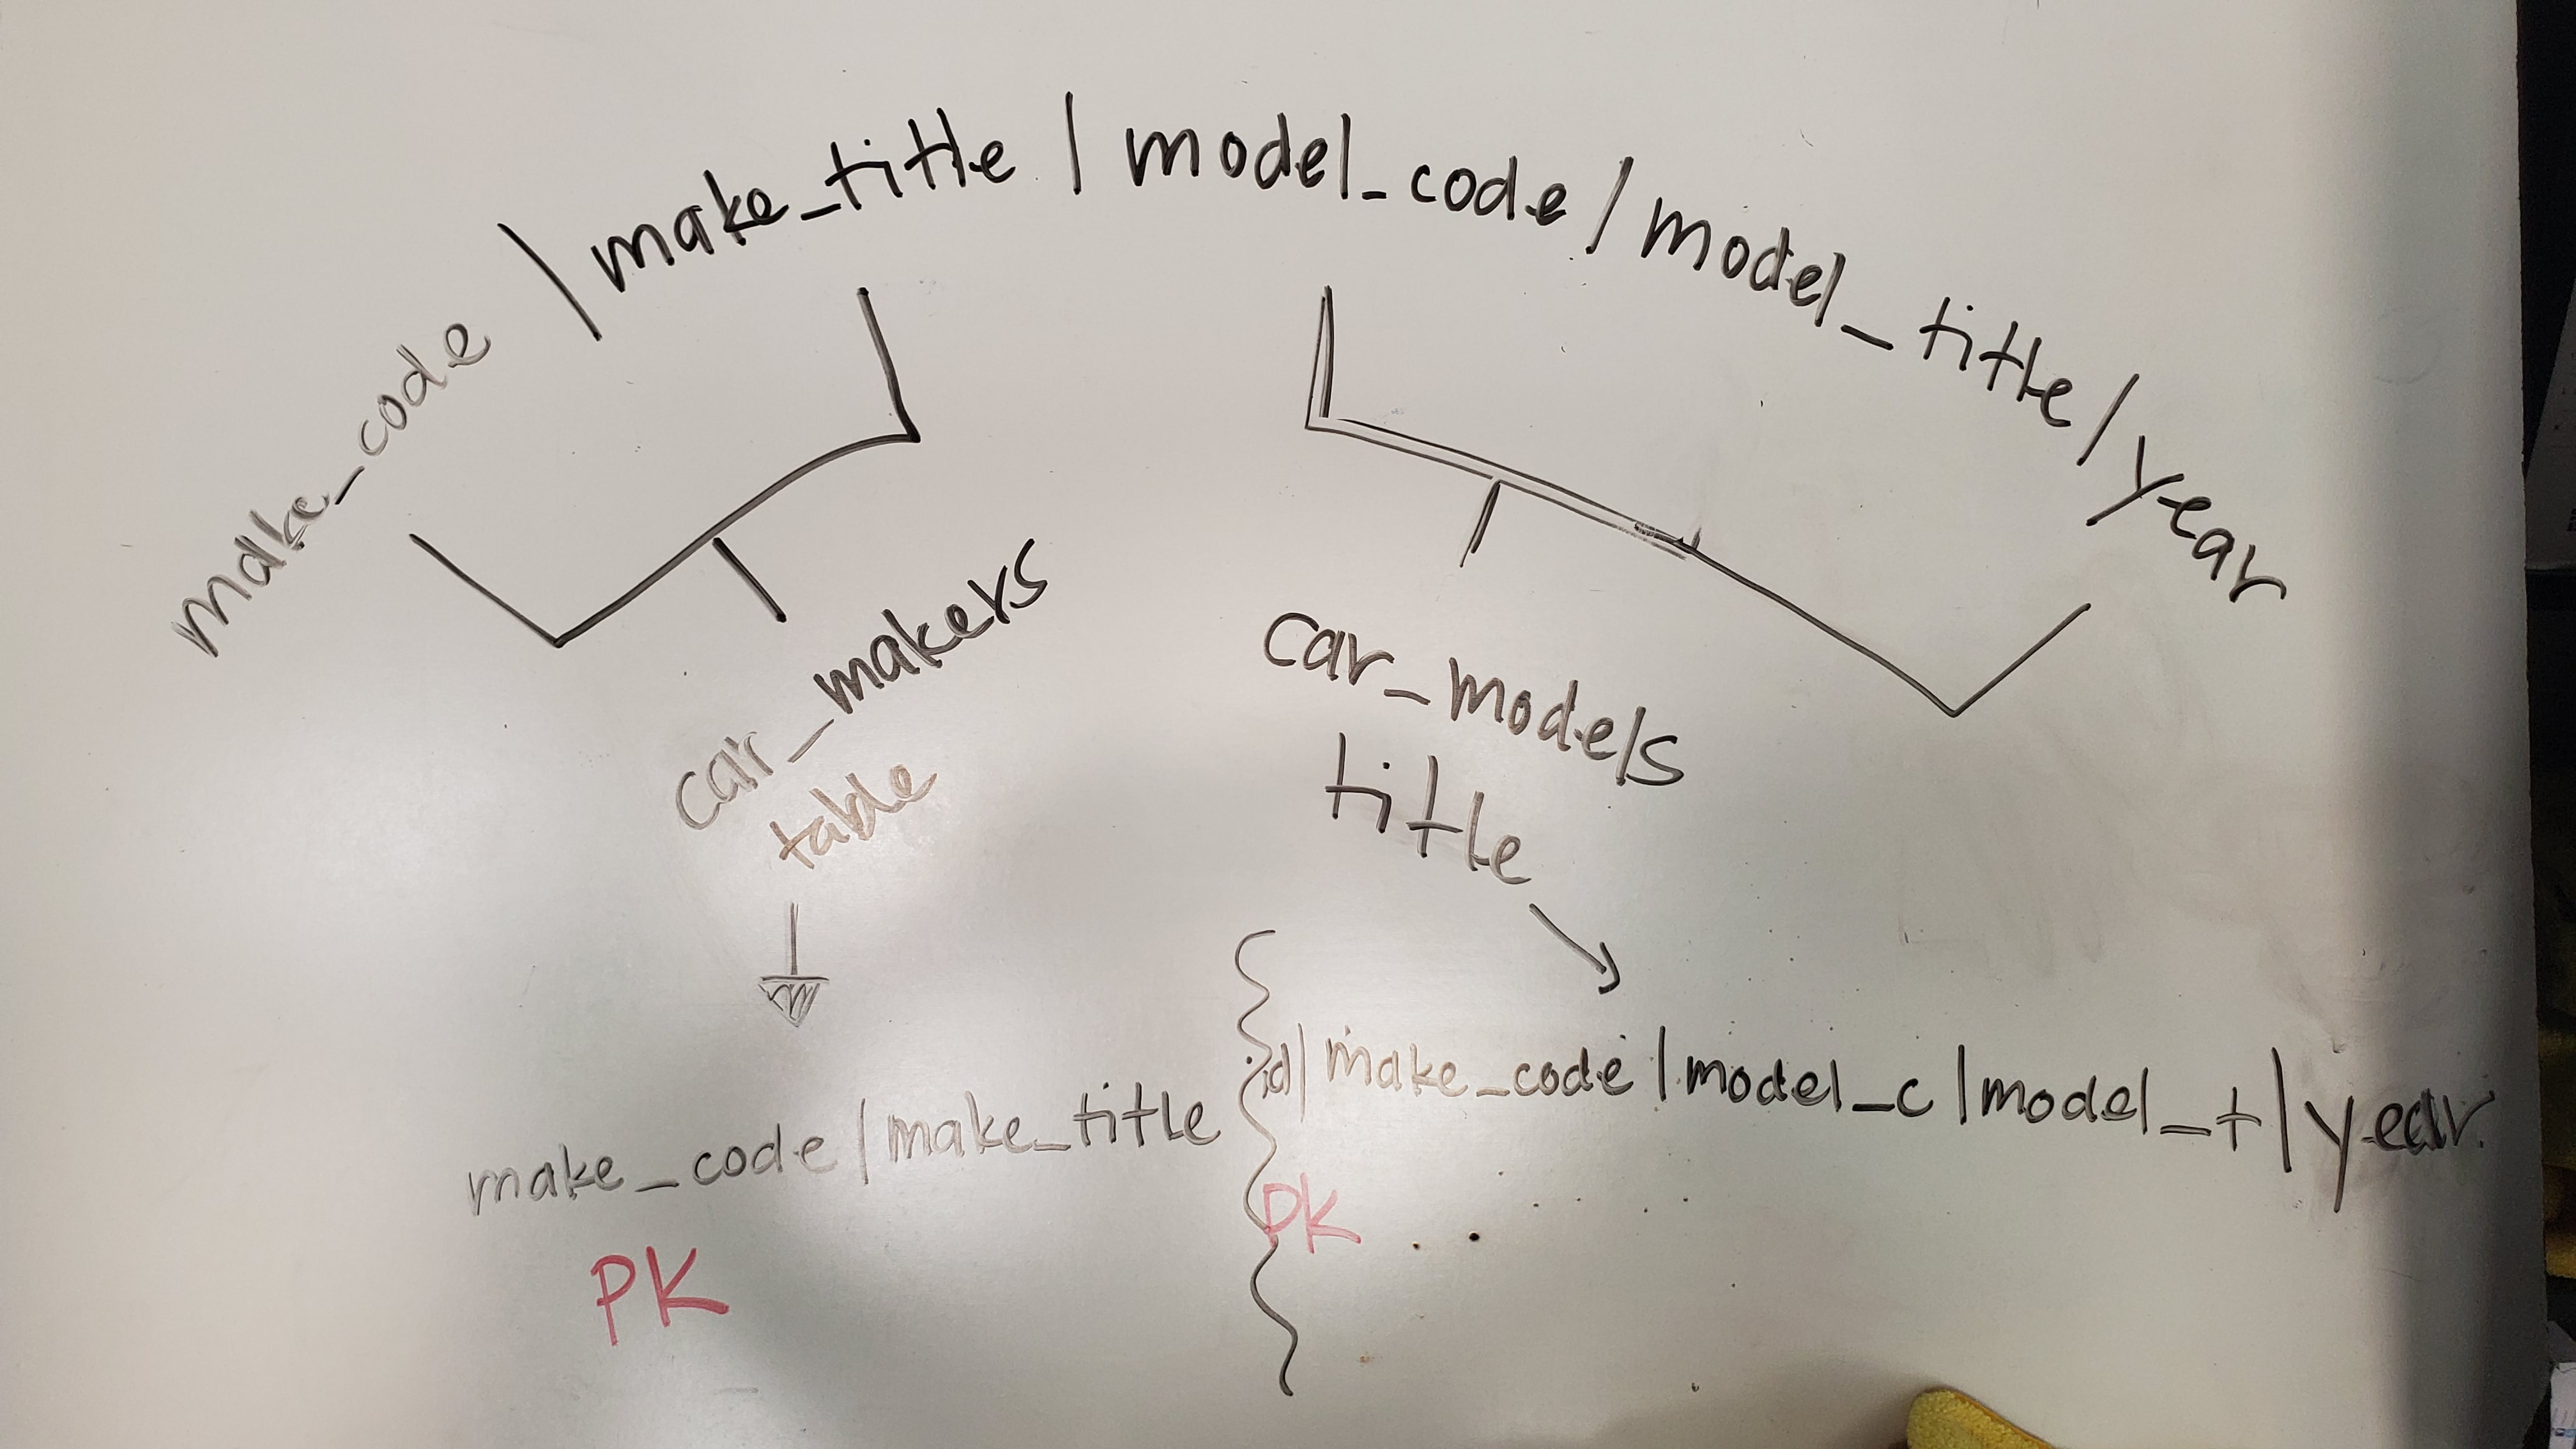 make_code | make_title | model_code | model_title | year
car_makers
table
car_models
title
make_code | make_title
PK
id | make_code | model_c | model_t | year
PK